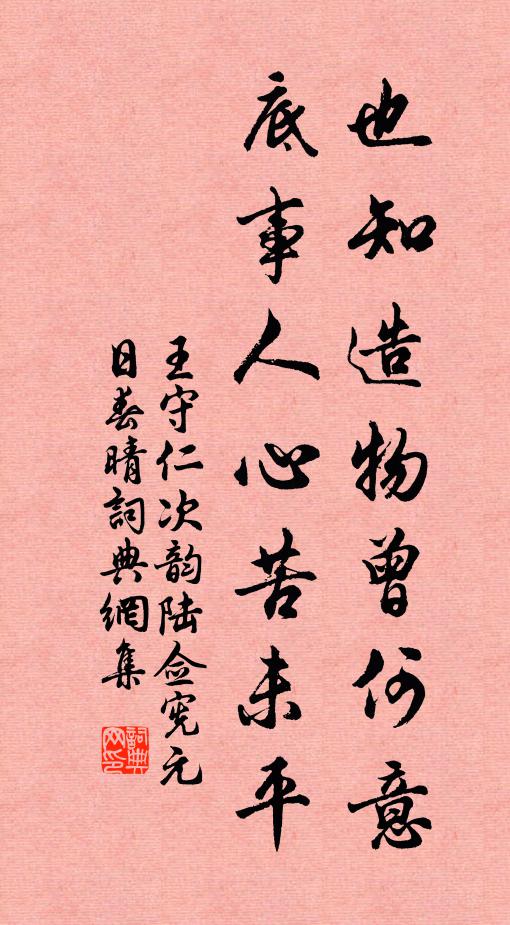 也知造物曾何意
底事人心苦未平
王守仁次韵陆佥宪元
日春晴詞典網集
詞典
网印